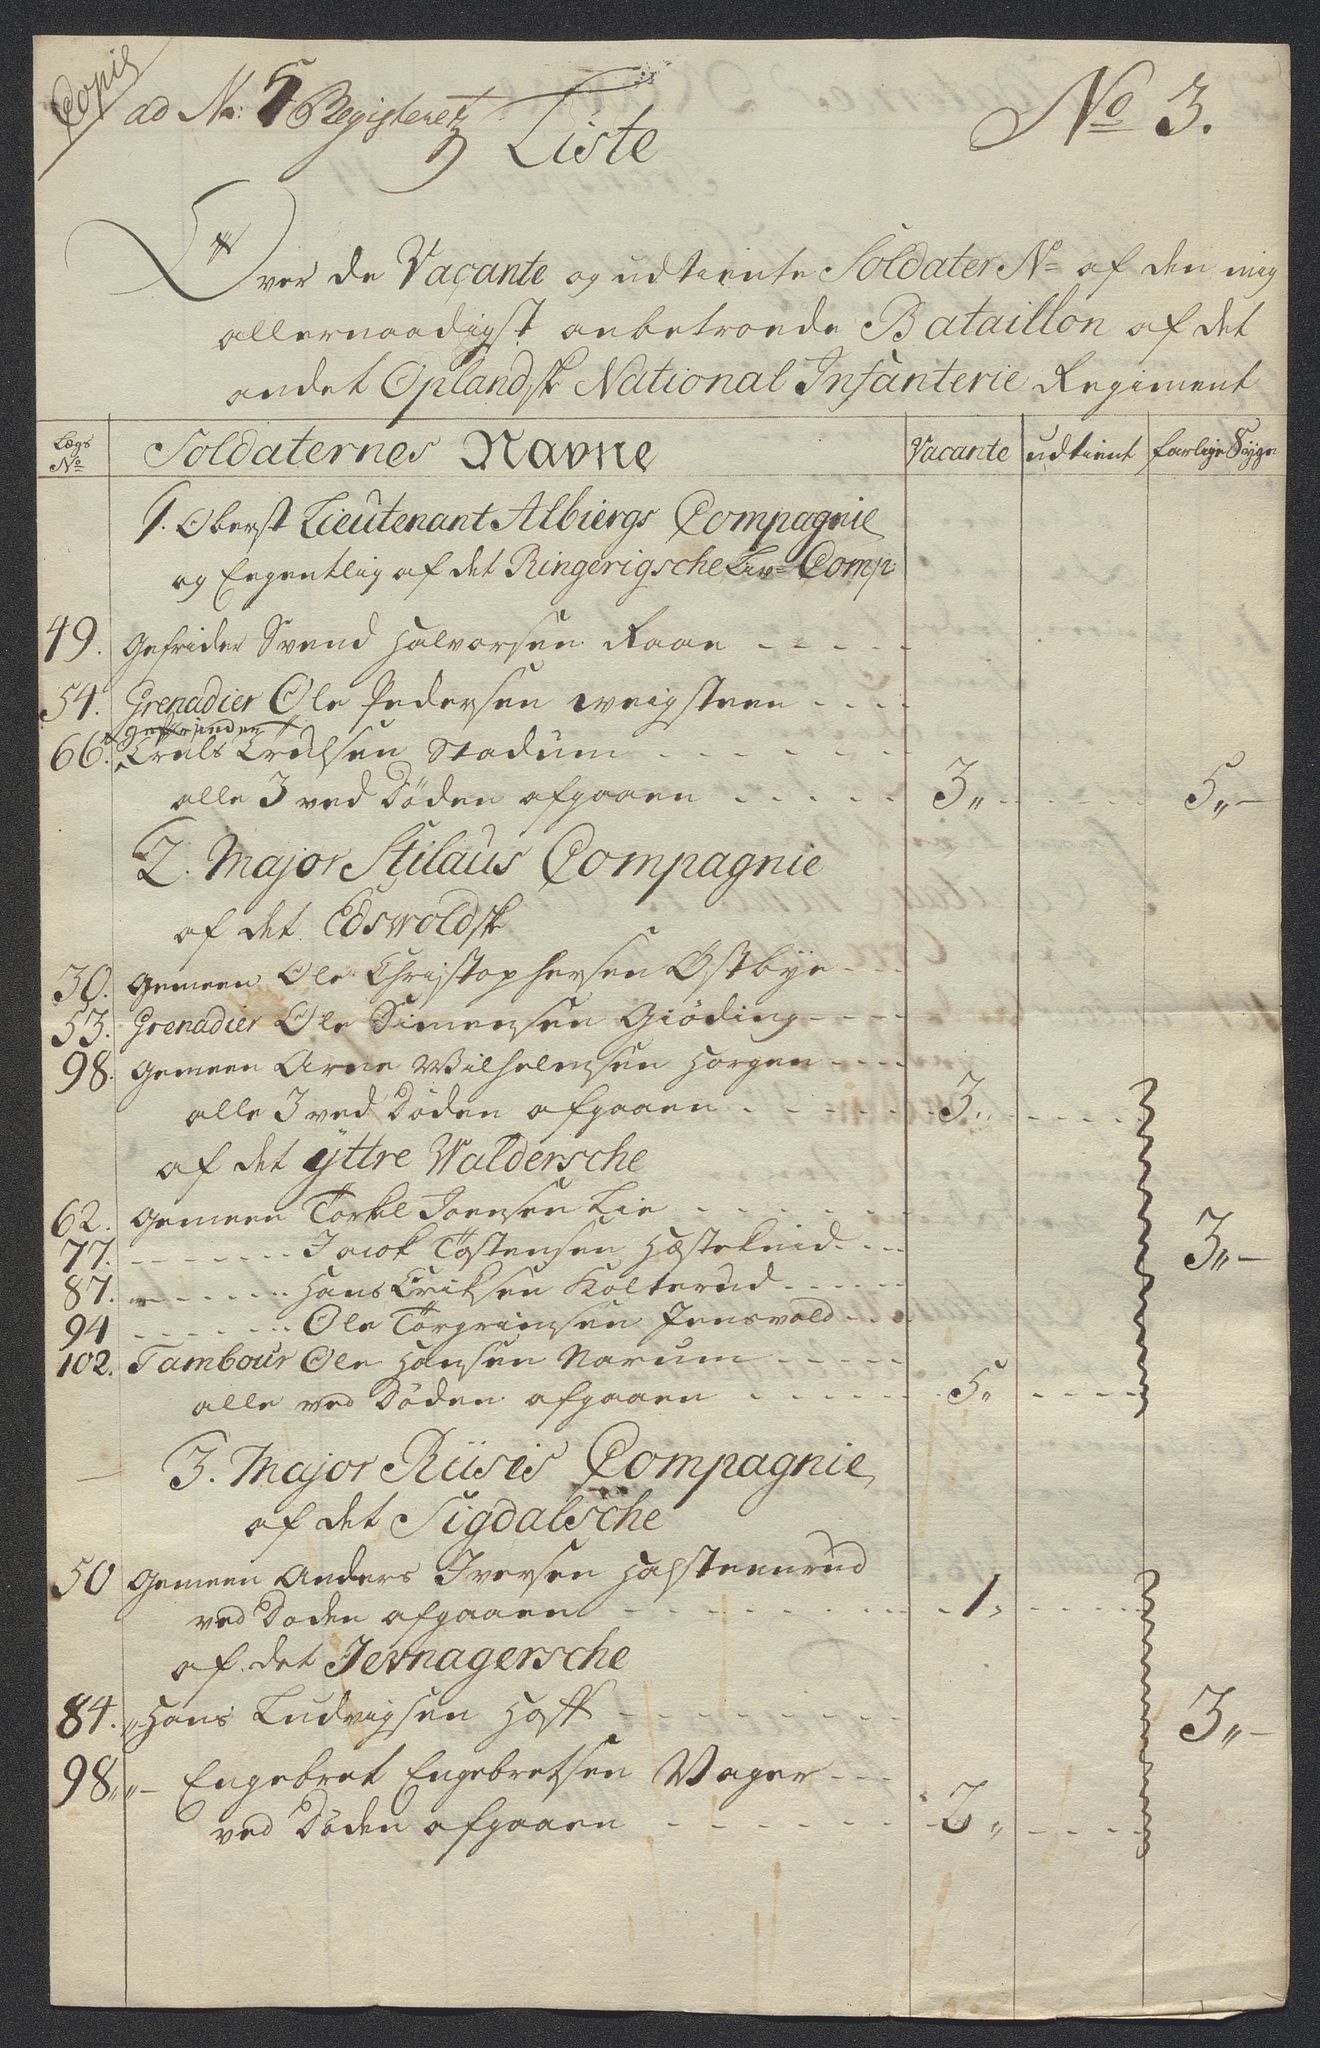 Copie
ad No: 5 Registeret
No 3.
Liste
Over de Vacante og udtiente Soldater No af den mig
allernaadigst anbetroede Bataillon af det
andet Oplandsk National Infanterie Regiment
Lægs No Soldaternes Navne Vacante udtient farlige Syge
1. Oberst Lieutenant Albiergs Compagnie
og Eegentlig af det Ringerigsche Liv- Comp:
49. Gefrider Svend Halvorsen Raae
54. Grenadier Ole Pedersen Weigsteen
Geffrieder
66. Truls Trulsen Stadum
alle 3 ved Döden afgaaen 3,, 5,,
2. Major Stilaus Compagnie
af det Edswoldsk
30. Gemeen Ole Christophersen Østbye
53. Grenadier Ole Simensen Giöding
98. Gemeen Arne Wilhelmsen Horgen
alle 3 ved Döden afgaaen 3,,
af det ÿttre Waldersche
62. Gemeen Torkel Joensen Lie
77. Jacob Tostensen Hæstekind 3,,
87. Hans Eriksen Kolterud
94 Ole Torgrimsen Jensvold
102. Tambour Ole Hansen Narum
alle ved Döden afgaaen 5,,
3. Major Riises Compagnie
af det Sigdalsche
50 Gemeen Anders Iversen Halsteenrud
ved Doden afgaaen 1,
af det Jevnagersche
84. ,, Hans Ludvigsen Hoff 3,,
98,, ,, Engebret Engebretsen Vager
ved Döden afgaaen 2,,